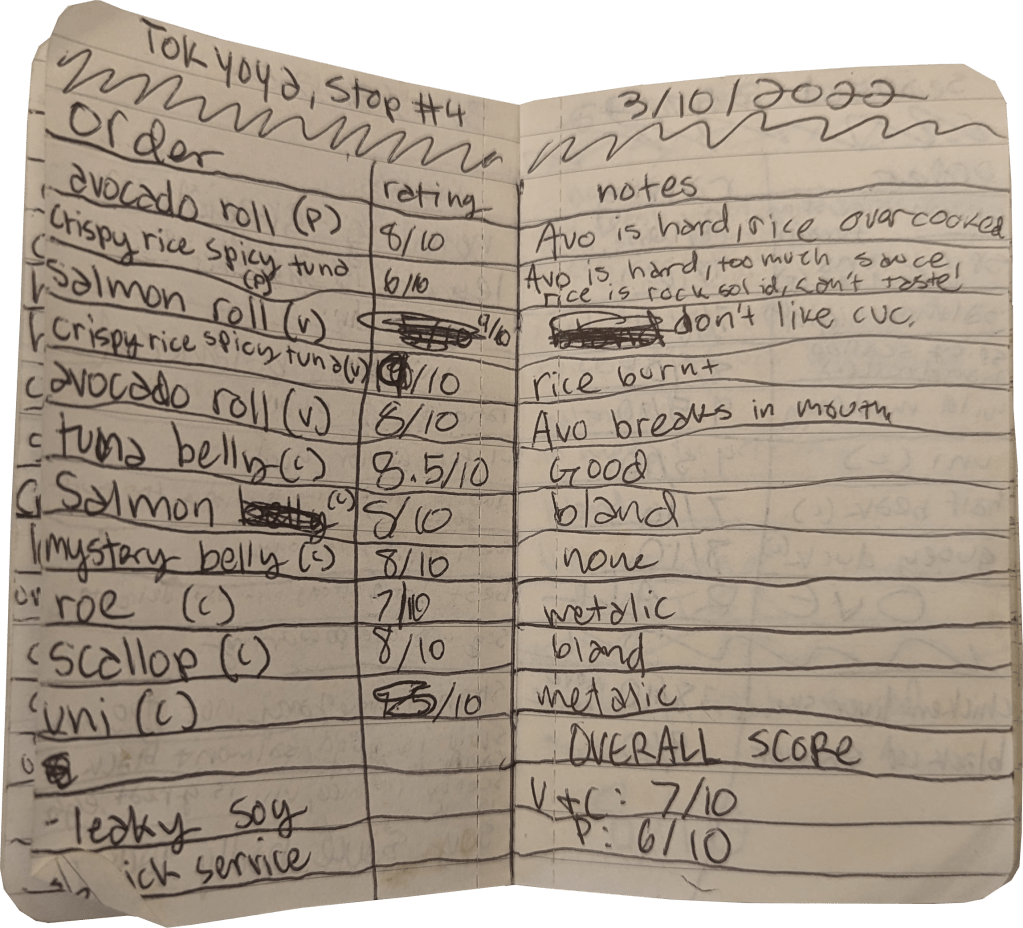 Tokyoya, Stop #4
3/10/2022
Order
rating
notes
avocado roll (p)
8/10
Avo is hard, rice overcooked
crispy rice spicy tuna
(p)
6/10
Avo is hard, too much sauce
rice is rock solid, can't taste!
Salmon roll (v)
9/10
don't like cuc.
crispy rice spicy tuna (v)
/10
rice burnt
avocado roll (v)
8/10
Avo breaks in mouth
tuna belly (c)
8.5/10
Good
Salmon (c)
5/10
bland
mystery belly (c)
8/10
none
roe (c)
7/10
metalic
scallop (c)
8/10
bland
uni (c)
/10
metalic
OVERALL SCORE
- leaky soy
V + C: 7/10
P: 6/10
ick service